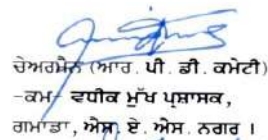 ਚੇਅਰਮੈਨ (ਆਰ. ਪੀ. ਡੀ. ਕਮੇਟੀ)
-ਕਮ- ਵਧੀਕ ਮੁੱਖ ਪ੍ਰਸ਼ਾਸਕ,
ਗਮਾਡਾ, ਐਸ. ਏ. ਐਸ. ਨਗਰ।